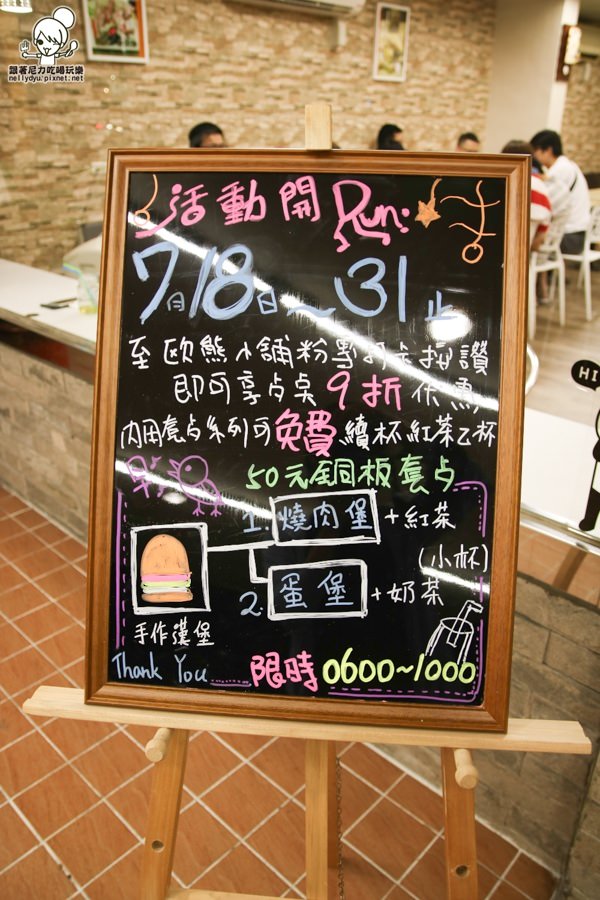 跟著尼力吃喝玩樂
nellydyu.pixnet.net
活動開Run:
7月18日~31止
至歐熊小舖粉專打卡按讚
即可享点桌9折优惠
內用套占系列可免費續杯紅茶乙杯
50元銅板套占
1. 燒肉堡+紅茶
(小杯)
2. 蛋堡+奶茶
手作漢堡
Thank You
限時0600~1000
HI